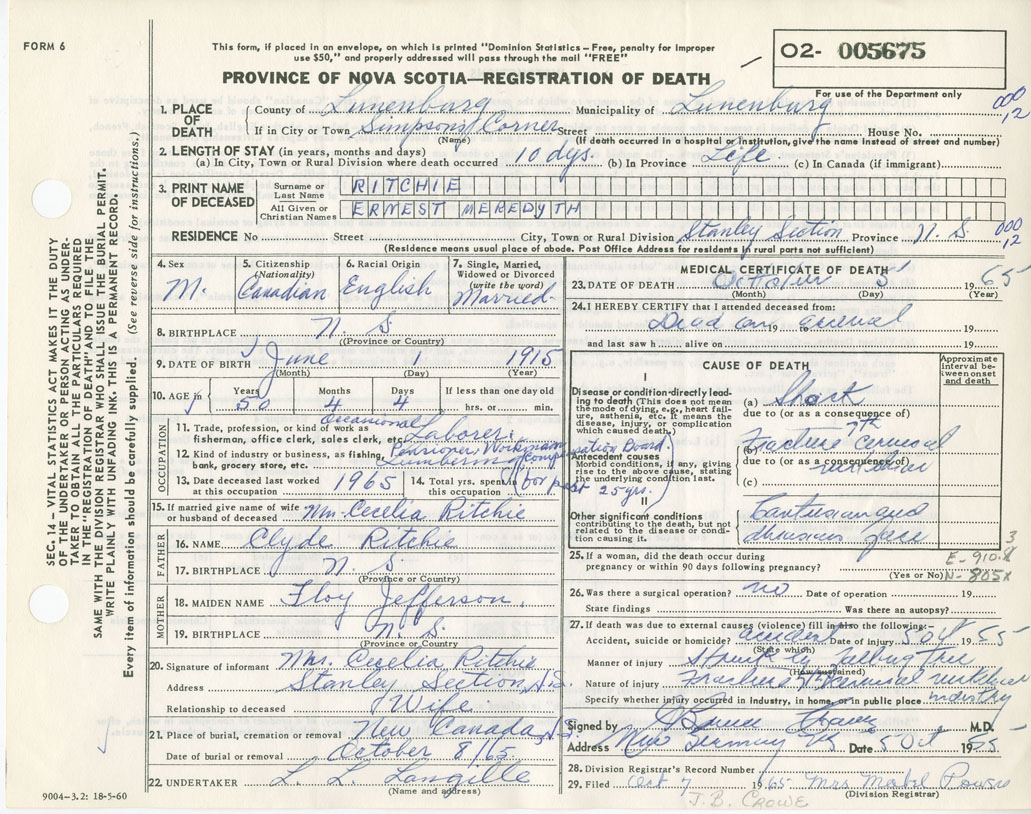 FORM 6
This form, if placed in an envelope, on which is printed "Dominion Statistics—Free, penalty for improper
use $50," and properly addressed will pass through the mail "FREE"
O2- 005675
PROVINCE OF NOVA SCOTIA—REGISTRATION OF DEATH
For use of the Department only
1. PLACE OF DEATH County of Lunenburg Municipality of Lunenburg 000 12
If in City or Town Simpson's Corner Street House No.
(Name) (If death occurred in a hospital or institution, give the name instead of street and number)
2. LENGTH OF STAY (in years, months and days)
(a) In City, Town or Rural Division where death occurred 10 dys. (b) In Province Life (c) In Canada (if immigrant)
3. PRINT NAME OF DECEASED
Surname or Last Name RITCHIE
All Given or Christian Names ERNEST MEREDYTH
RESIDENCE No Street City, Town or Rural Division Stanley Section Province N. S. 000 12
(Residence means usual place of abode. Post Office Address for residents in rural parts not sufficient)
4. Sex M.
5. Citizenship (Nationality) Canadian
6. Racial Origin English
7. Single, Married, Widowed or Divorced (write the word) Married
8. BIRTHPLACE N. S.
(Province or Country)
9. DATE OF BIRTH June 1 1915
(Month) (Day) (Year)
10. AGE in Years 50 Months 4 Days 4 If less than one day old hrs. or min.
OCCUPATION
11. Trade, profession, or kind of work as fisherman, office clerk, sales clerk, etc. Occasional Laborer
12. Kind of industry or business, as fishing, bank, grocery store, etc. Pensioner Workmans Compensation Board. Lumbering
13. Date deceased last worked at this occupation 1965
14. Total yrs. spent in this occupation (for past 25 yrs.)
15. If married give name of wife or husband of deceased Mrs. Cecelia Ritchie
FATHER
16. NAME Clyde Ritchie
17. BIRTHPLACE N. S.
(Province or Country)
MOTHER
18. MAIDEN NAME Floy Jefferson
19. BIRTHPLACE N. S.
(Province or Country)
20. Signature of informant Mrs. Cecelia Ritchie
Address Stanley Section, N.S.
Relationship to deceased Wife
21. Place of burial, cremation or removal New Canada, N.S.
Date of burial or removal October 8/65
22. UNDERTAKER L. L. Langille
(Name and address)
MEDICAL CERTIFICATE OF DEATH
23. DATE OF DEATH October 5 1965
(Month) (Day) (Year)
24. I HEREBY CERTIFY that I attended deceased from:
Dead on arrival 19
and last saw h alive on 19
CAUSE OF DEATH
Approximate interval between onset and death
I
Disease or condition directly leading to death (This does not mean the mode of dying, e.g., heart failure, asthenia, etc. It means the disease, injury, or complication which caused death.)
(a) Shock
due to (or as a consequence of)
Antecedent causes
Morbid conditions, if any, giving rise to the above cause, stating the underlying condition last.
(b) Fracture 7th cervical
due to (or as a consequence of)
(c)
II
Other significant conditions contributing to the death, but not related to the disease or condition causing it.
face
25. If a woman, did the death occur during pregnancy or within 90 days following pregnancy?
(Yes or No)
E-910.8
3
N-805x
26. Was there a surgical operation? no Date of operation 19
State findings Was there an autopsy?
27. If death was due to external causes (violence) fill in also the following:-
Accident, suicide or homicide? accident Date of injury 5 Oct 1955
(State which)
Manner of injury Struck by falling tree
(How sustained)
Nature of injury Fracture 7th cervical
Specify whether injury occurred in industry, in home, or in public place industry
Signed by M.D.
Address New Germany NS Date 5 Oct 1955
28. Division Registrar's Record Number
29. Filed Oct 7 1965 Mrs Mabel Powers
(Division Registrar)
J.B. CROWE
SEC. 14 – VITAL STATISTICS ACT MAKES IT THE DUTY
OF THE UNDERTAKER OR PERSON ACTING AS UNDER-
TAKER TO OBTAIN ALL THE PARTICULARS REQUIRED
IN THE "REGISTRATION OF DEATH" AND TO FILE THE
SAME WITH THE DIVISION REGISTRAR WHO SHALL ISSUE THE BURIAL PERMIT.
WRITE PLAINLY WITH UNFADING INK. THIS IS A PERMANENT RECORD.
Every item of information should be carefully supplied. (See reverse side for instructions.)
9004-3.2: 18-5-60